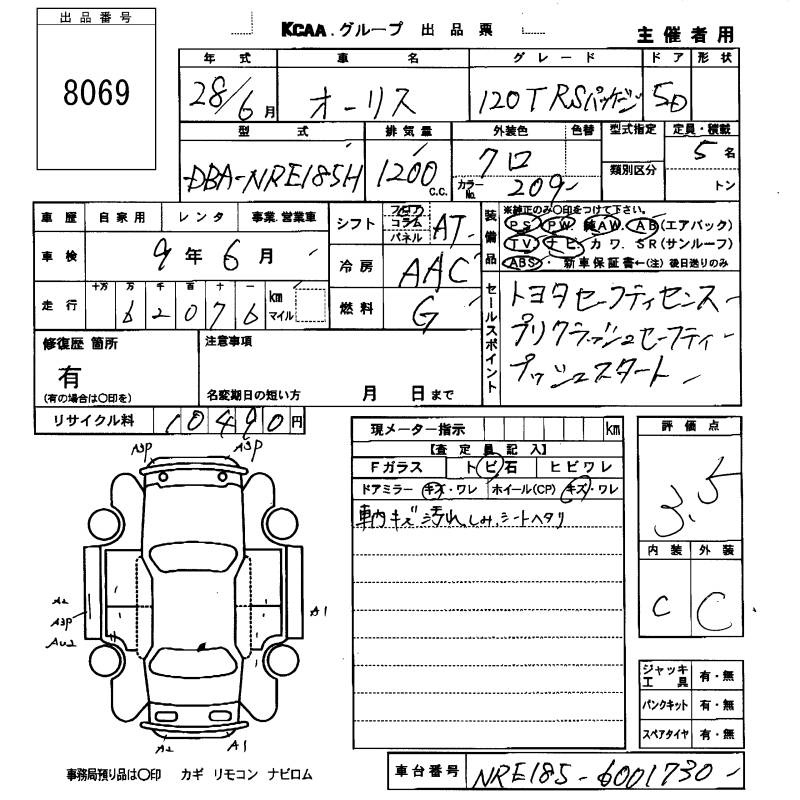 出品番号
8069
KCAA.グループ 出品票
主催者用
年式 車名 グレード ドア 形状
28/6月 オーリス 120T RSパッケージ 5D
型式 排気量 外装色 色替 型式指定 定員・積載
DBA-NRE185H 1200c.c. クロ 5名
カラーNo. 209 類別区分 トン
車歴 自家用 レンタ 事業.営業車 シフト フロア コラム パネル AT
装備品 ※純正のみ〇印をつけて下さい。
PS PW. 純AW. AB(エアバック)
TV. ナビ. カワ. SR(サンルーフ)
ABS・ 新車保証書←(注)後日送りのみ
車検 9年6月 冷房 AAC
走行 十万 万 千 百 十 一 km マイル 燃料 G
62076
セールスポイント トヨタセーフティセンス
プリクラッシュセーフティ
プッシュスタート
修復歴 箇所 注意事項
有
(有の場合は〇印を) 名変期日の短い方 月 日まで
リサイクル料 10490円
現メーター指示 km
【査定員記入】
Fガラス トビ石 ヒビワレ
ドアミラー キズ・ワレ ホイール(CP) キズ・ワレ
車内キズ 汚れ,しみ,シートヘタリ
評価点
3.5
内装 外装
C C
A3P A3P
A2
A3P
AU2
A1
A2 A1
ジャッキ工具 有・無
パンクキット 有・無
スペアタイヤ 有・無
事務局預り品は〇印 カギ リモコン ナビロム
車台番号 NRE185-6001730